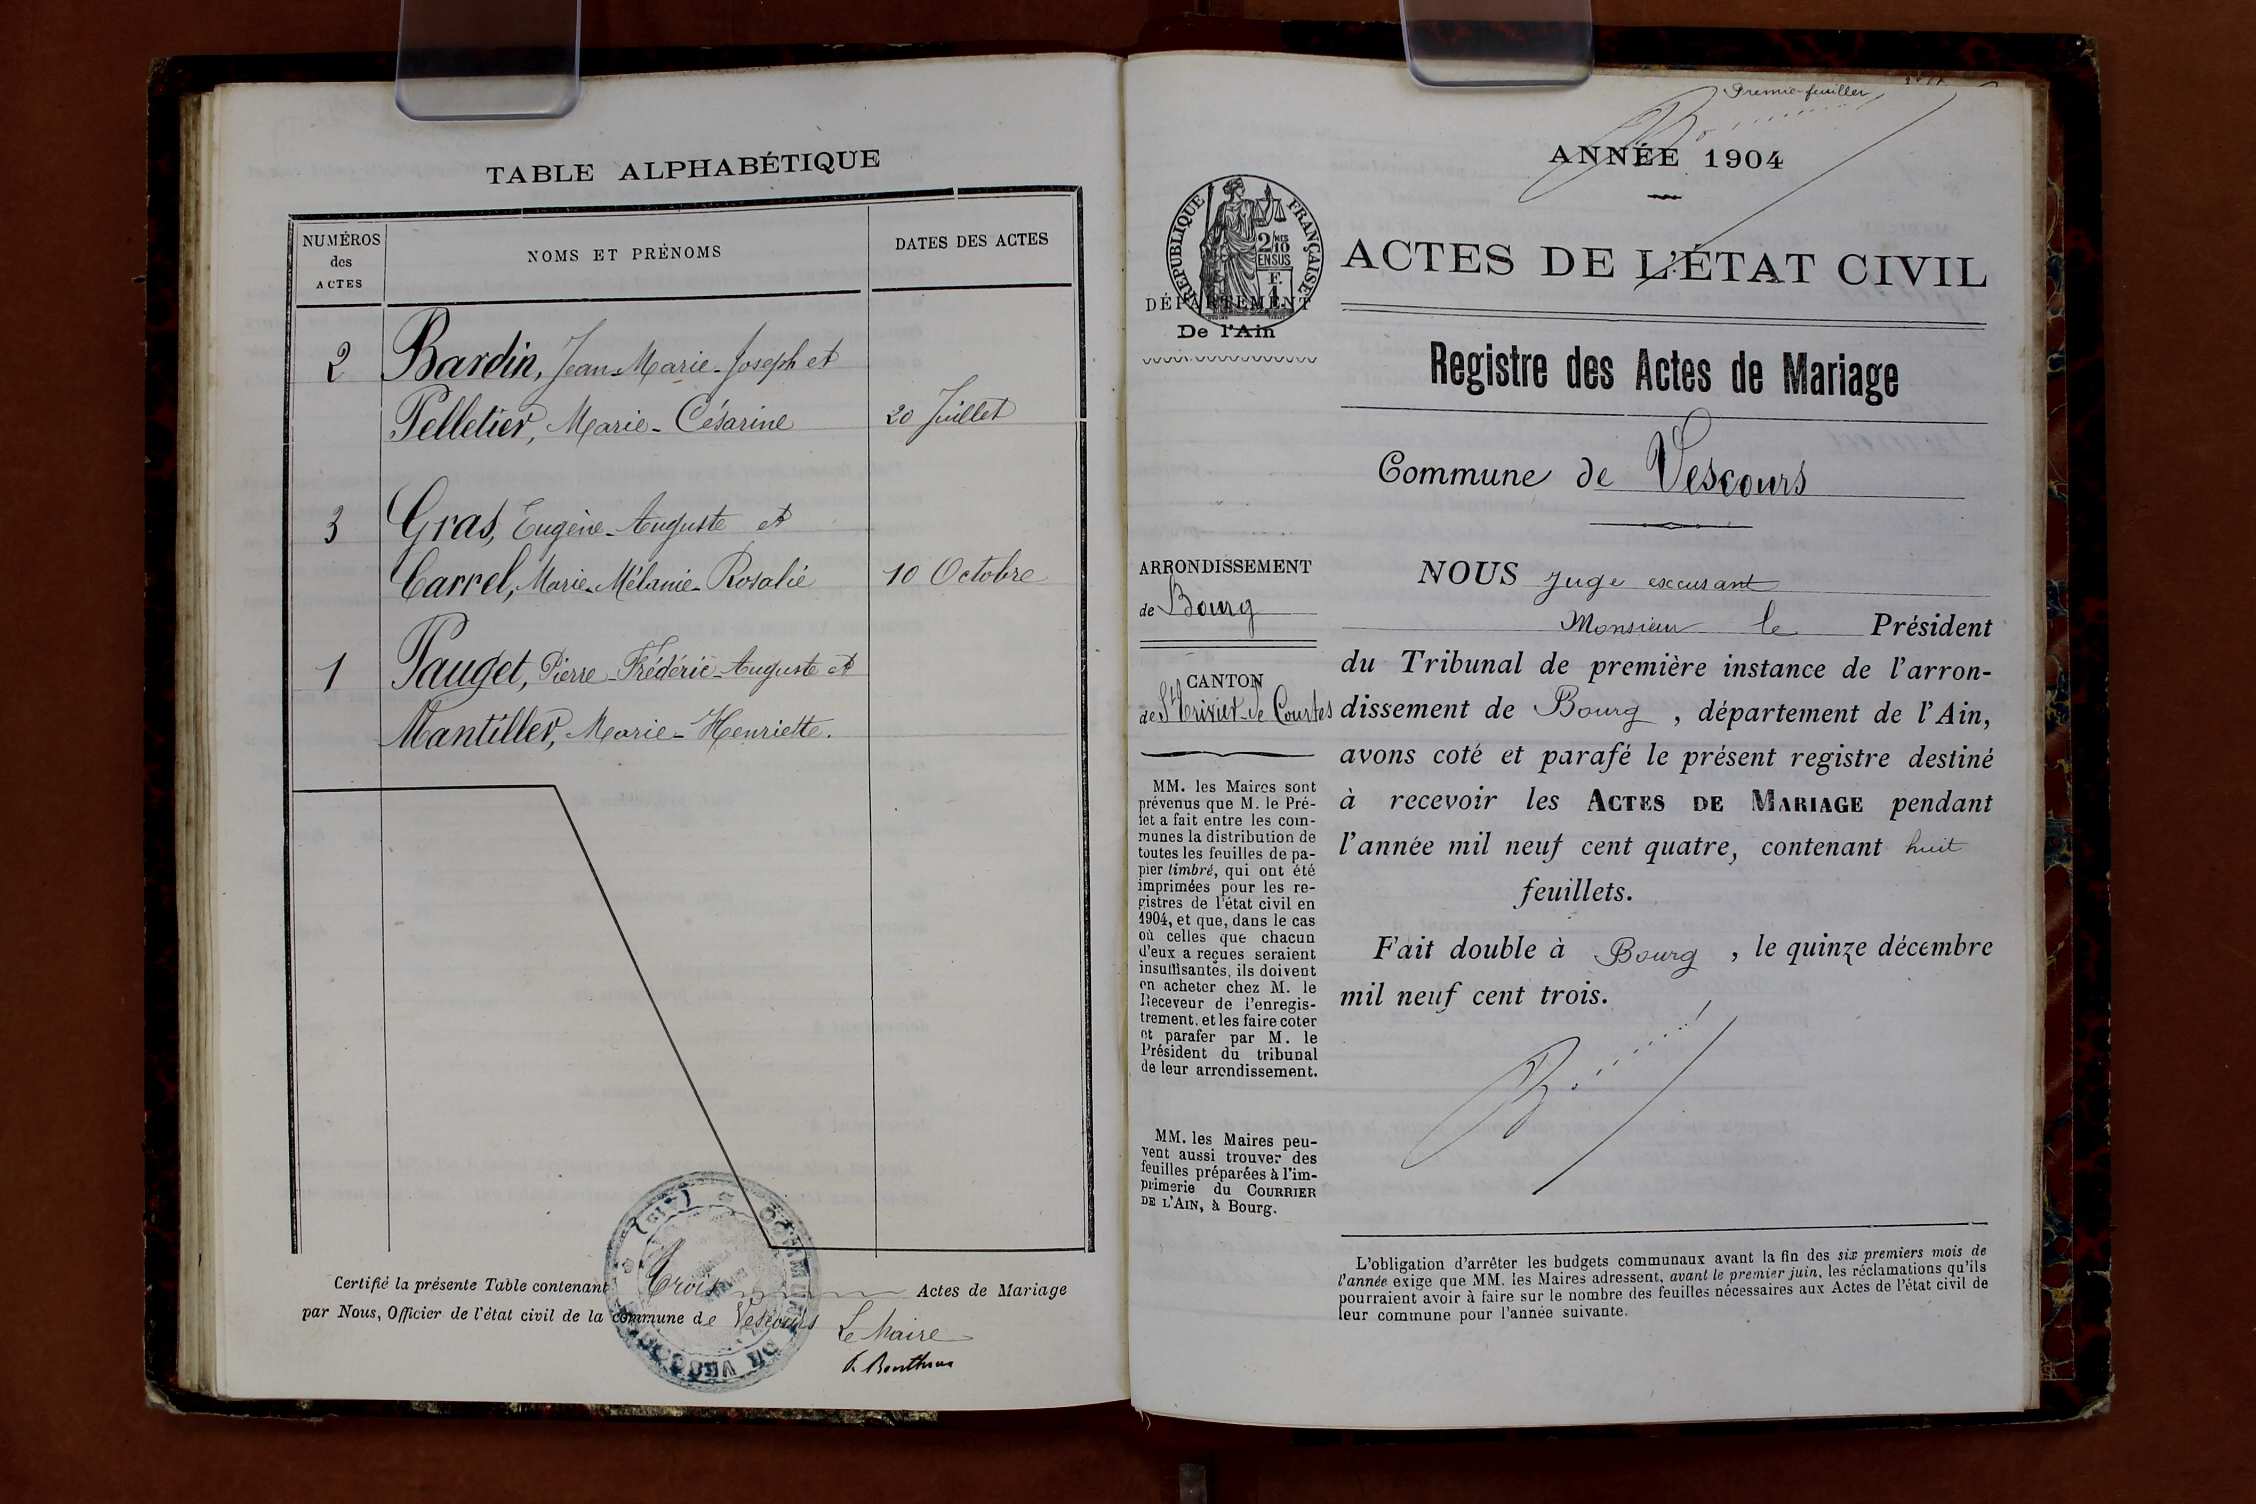 TABLE ALPHABÉTIQUE
NUMÉROS
des
ACTES
NOMS ET PRÉNOMS
DATES DES ACTES
2 Bardin, Jean-Marie-Joseph et
Pelletier, Marie-Césarine 20 Juillet
3 Gras, Eugène-Auguste et
Carrel, Marie-Mélanie-Rosalie 10 Octobre
1 Pauget, Pierre-Frédéric-Auguste et
Mantiller, Marie-Henriette.
Certifié la présente Table contenant Trois Actes de Mariage
par Nous, Officier de l'état civil de la commune de Vescours Le Maire
COMMUNE DE VESCOURS (AIN)
Premier feuillet
ANNÉE 1904
RÉPUBLIQUE FRANÇAISE
2/10
EN SUS
DÉPARTEMENT
De l'Ain
ACTES DE L'ÉTAT CIVIL
Registre des Actes de Mariage
Commune de Vescours
ARRONDISSEMENT
de Bourg
CANTON
de St Trivier-de Courtes
MM. les Maires sont
prévenus que M. le Pré-
fet a fait entre les com-
munes la distribution de
toutes les feuilles de pa-
pier timbré, qui ont été
imprimées pour les re-
gistres de l'état civil en
1904, et que, dans le cas
où celles que chacun
d'eux a reçues seraient
insuffisantes, ils doivent
en acheter chez M. le
Receveur de l'enregis-
trement, et les faire coter
et parafer par M. le
Président du tribunal
de leur arrondissement.
MM. les Maires peu-
vent aussi trouver des
feuilles préparées à l'im-
primerie du COURRIER
DE L'AIN, à Bourg.
NOUS Juge excusant
Monsieur le Président
du Tribunal de première instance de l'arron-
dissement de Bourg, département de l'Ain,
avons coté et parafé le présent registre destiné
à recevoir les ACTES DE MARIAGE pendant
l'année mil neuf cent quatre, contenant huit
feuillets.
Fait double à Bourg, le quinze décembre
mil neuf cent trois.
L'obligation d'arrêter les budgets communaux avant la fin des six premiers mois de
l'année exige que MM. les Maires adressent, avant le premier juin, les réclamations qu'ils
pourraient avoir à faire sur le nombre des feuilles nécessaires aux Actes de l'état civil de
leur commune pour l'année suivante.